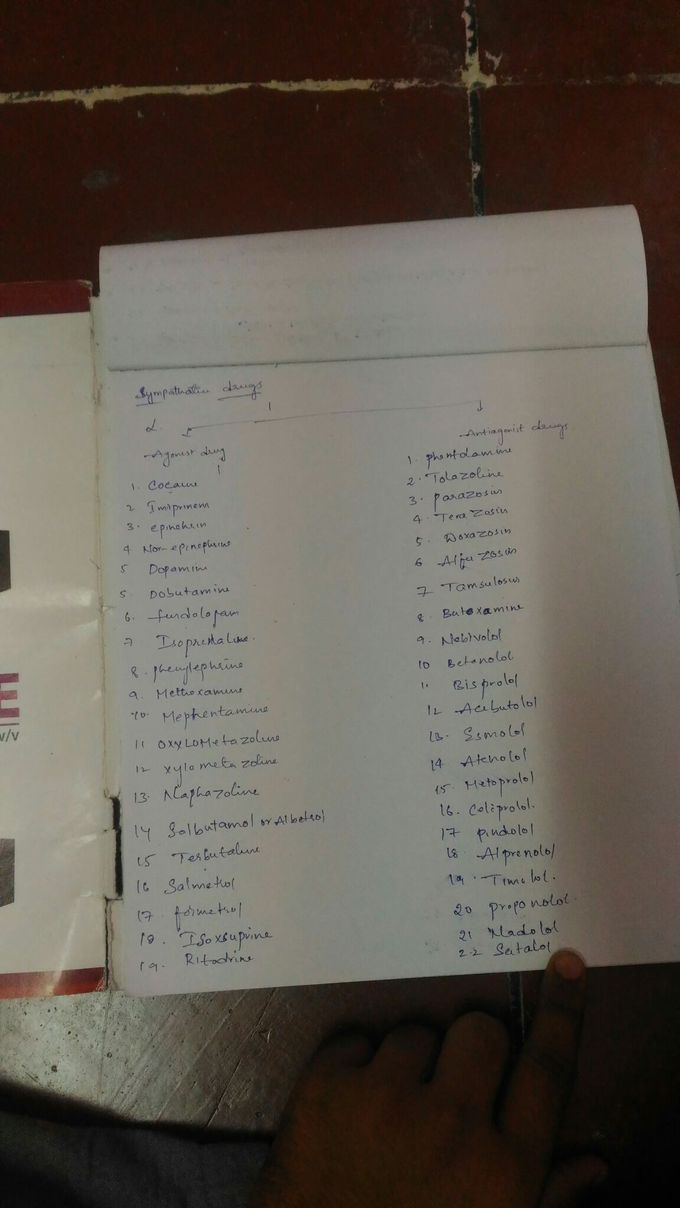 Sympathatic drugs
α.
Agonist drug
1. Cocaine
2 Imiprinem
3. epinehrin
4 Nor-epinephrine
5 Dopamine
5 Dobutamine
6. fundolopam
7 Isoprenaline.
8. phenylephrine
9. Methoxamine
10. Mephentamine
11 OXYLOMetazoline
12 xylometazoline
13. Naphazoline
14 Salbutamol or Albetrol
15 Terbutaline
16 Salmetrol
17. formetrol
18. Isoxsuprine
19. Ritodrine
Antiagonist drugs
1. phentolamine
2. Tolazoline
3. parazosin
4. Terazosin
5. Doxazosin
6 Alfuzosin
7 Tamsulosin
8. Butoxamine
9. Nebivolol
10 Betanolol
11 Bisprolol
12 Acebutolol
13. Esmolol
14 Atenolol
15. Metoprolol
16. Celiprolol.
17 pindolol
18 Alprenolol
19. Timolol.
20 proponolol.
21 Nadolol
22 Satalol
E
v/v